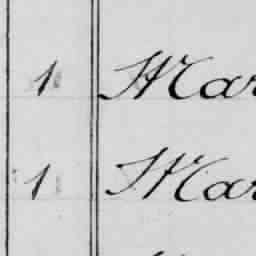 1 Mar
1 Mar